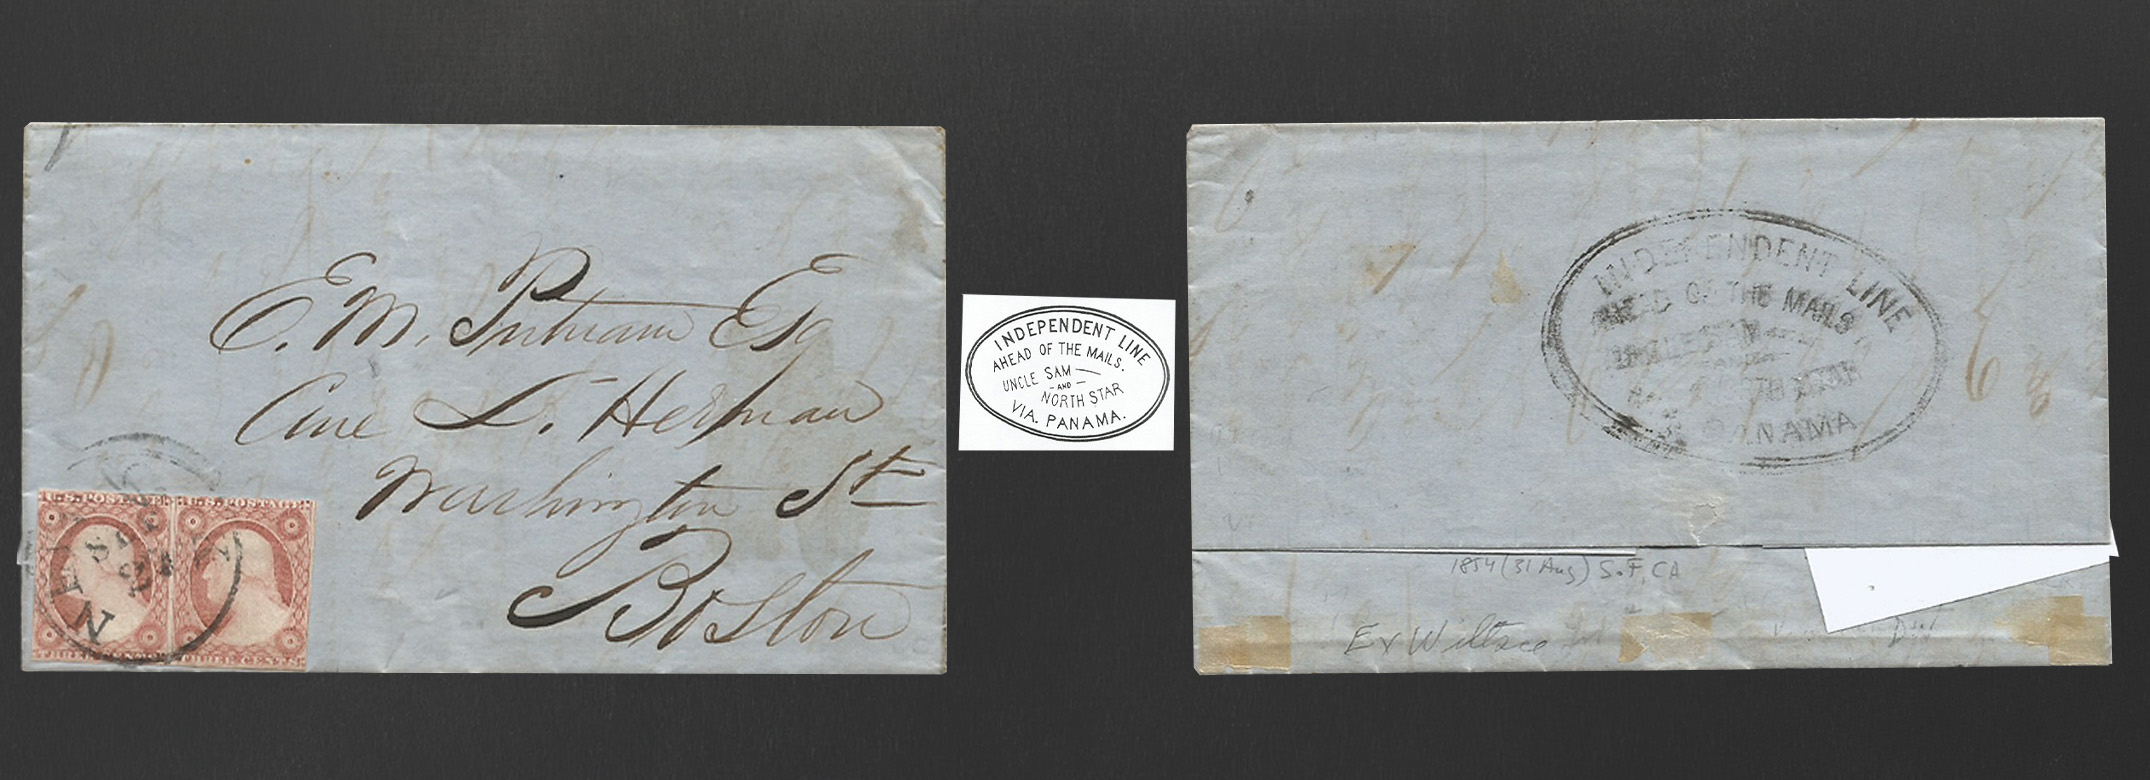 E. M. Putnam Esq
Care L. Herman
Washington St
Boston
U.S. POSTAGE U.S. POSTAGE
NEW
SEP
THREE CENTS THREE CENTS
INDEPENDENT LINE
AHEAD OF THE MAILS.
UNCLE SAM
- AND -
NORTH STAR
VIA. PANAMA.
INDEPENDENT LINE
AHEAD OF THE MAILS
UNCLE SAM
NORTH STAR
PANAMA
1854 (31 Aug) S.F, CA
Ex Wiltsee